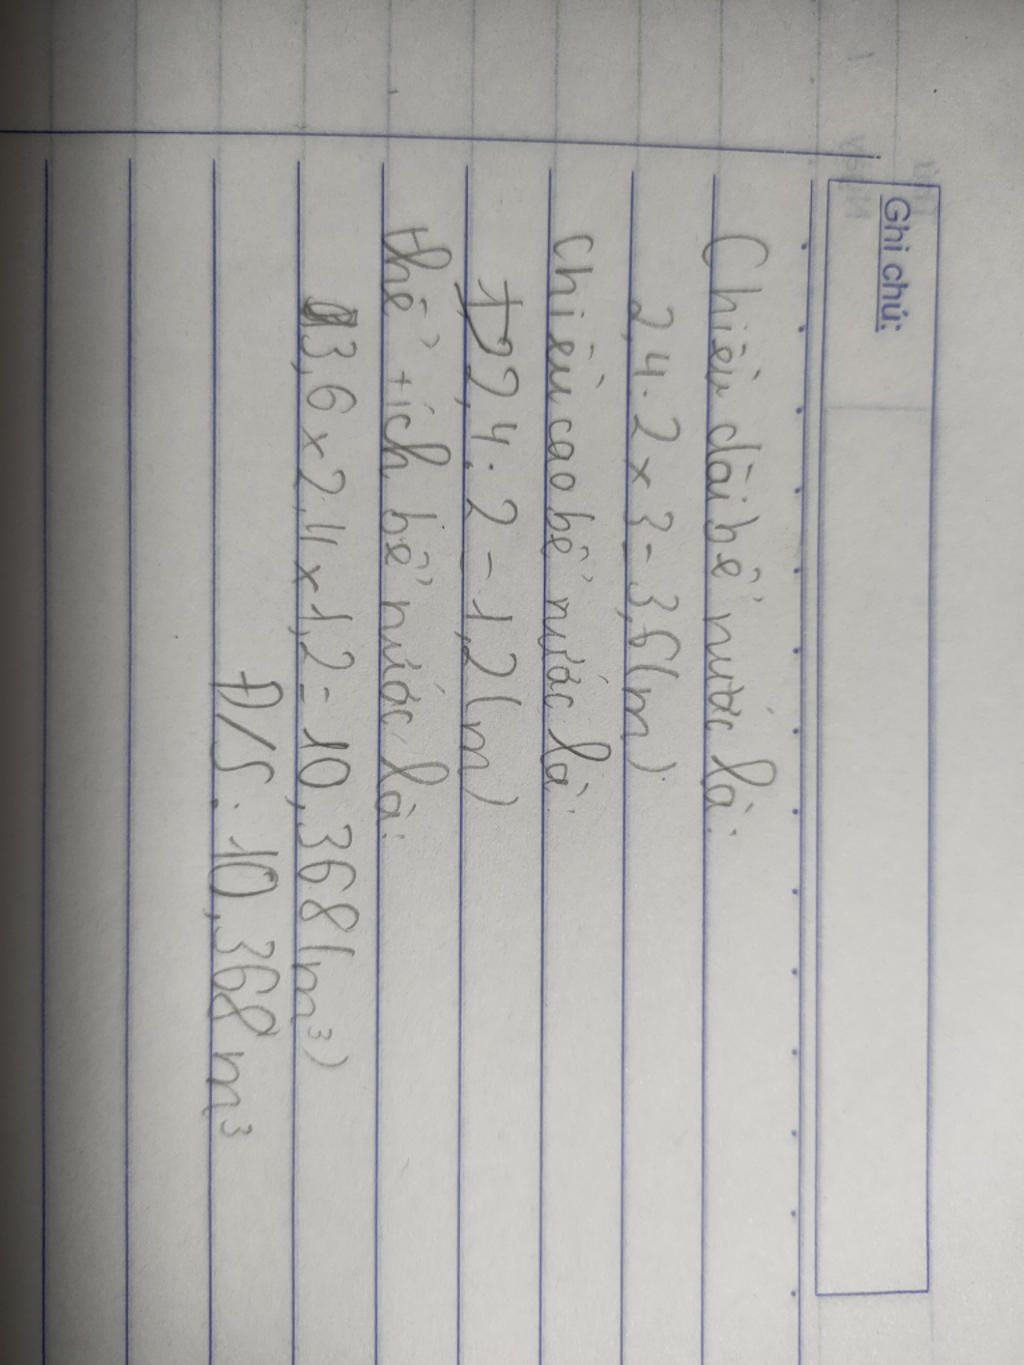 Ghi chú:
Chiều dài bể nước là:
2,4 : 2 x 3 = 3,6 (m)
Chiều cao bể nước là:
2,4 : 2 = 1,2 (m)
thể tích bể nước là:
3,6 x 2,4 x 1,2 = 10,368 (m³)
Đ/S : 10,368 m³